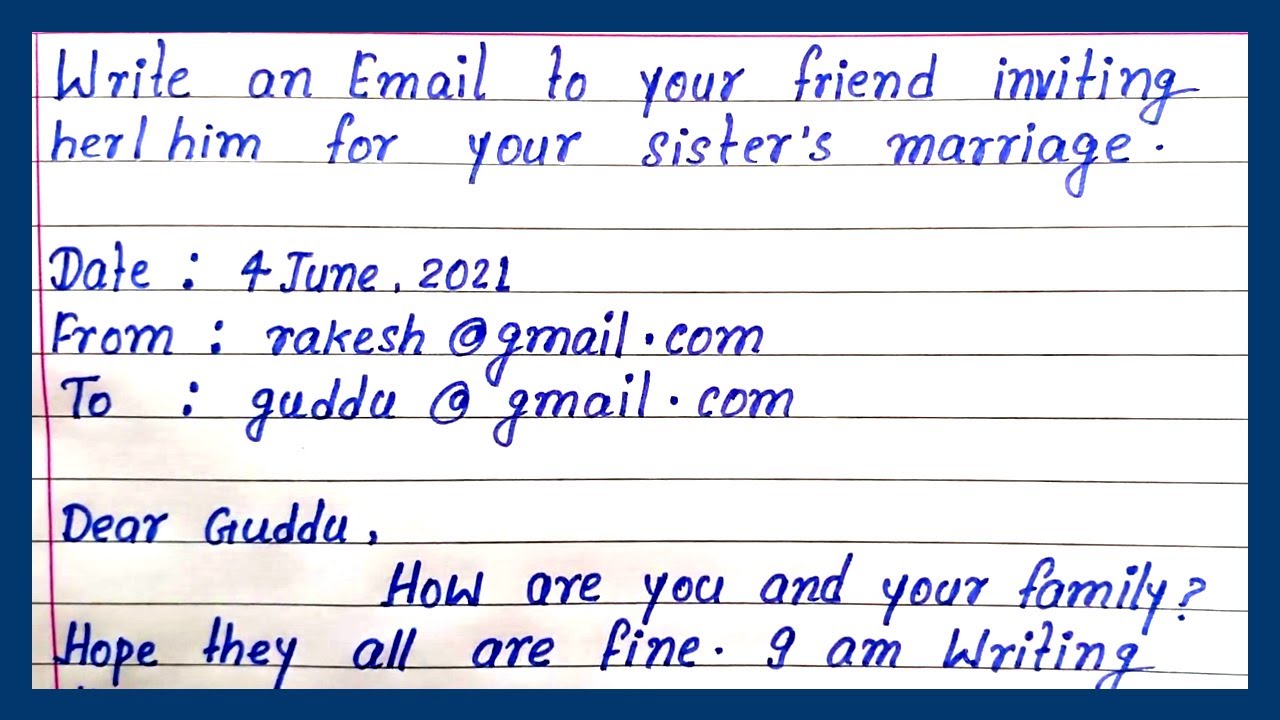 Write an Email to your friend inviting
her/him for your sister's marriage.
Date : 4 June, 2021
From : rakesh @gmail.com
To : guddu @ gmail.com
Dear Guddu,
How are you and your family?
Hope they all are fine. I am Writing